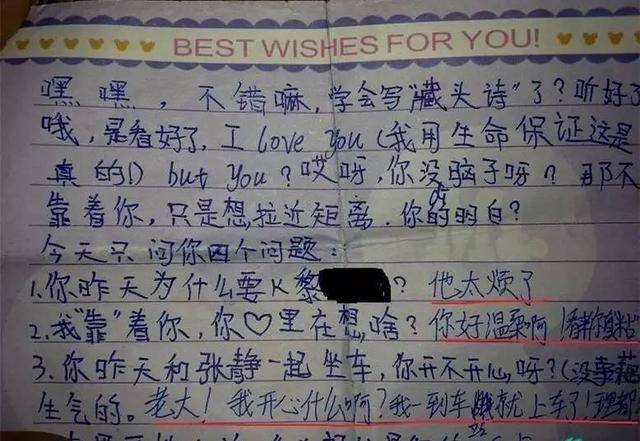 BEST WISHES FOR YOU!
嘿嘿，不错嘛，学会写"藏头诗"了？听好了
哦，是看好了，I love you（我用生命保证这是
真的!) but you？哎呀，你没脑子呀？那不
靠着你，只是想拉近距离，你的明白？
今天只问你四个问题：
1.你昨天为什么要K黎？他太烦了
2.我"靠"着你，你♡里在想啥？你好温柔啊！
3.你昨天和张静一起坐车，你开不开心呀？(没事
生气的。老大！我开心什么啊？我一到车就上车了！理都